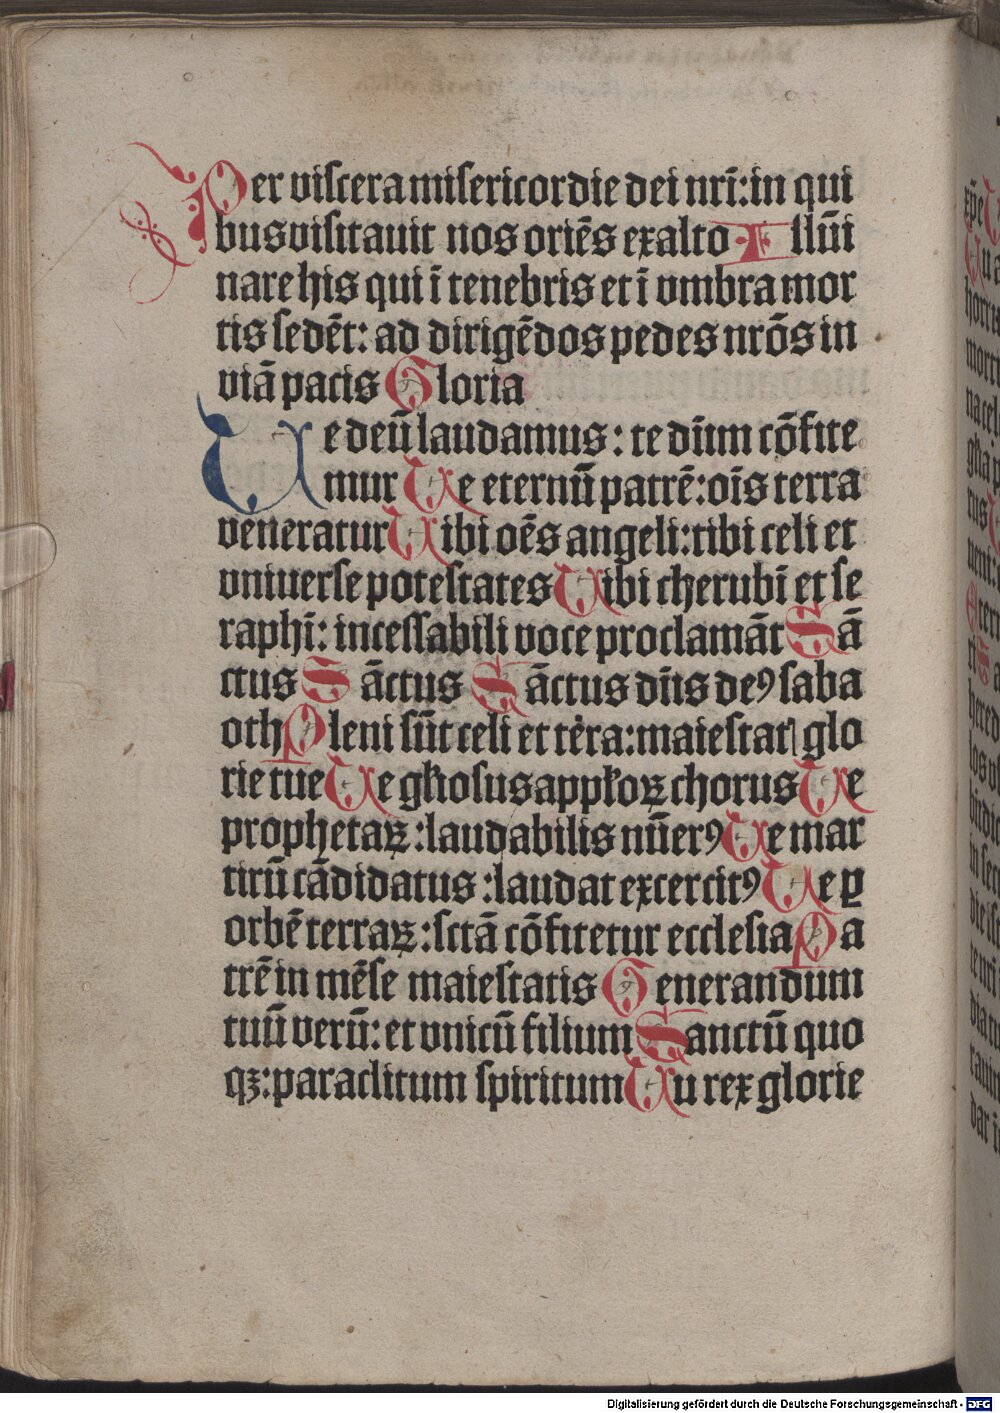 Per viscera misericordie dei nr̄i: in qui
bus visitauit nos oriēs ex alto Illūi
nare his qui ī tenebris et ī vmbra mor
tis sedēt: ad dirigēdos pedes nrōs in
viā pacis Gloria
Te deū laudamus: te dn̄m cōfite
mur Te eternū patrē: oīs terra
veneratur Tibi oēs angeli: tibi celi et
vniuerse potestates Tibi cherubī et se
raphī: incessabili voce proclamāt Sā
ctus Sāctus Sāctus dn̄s deꝰ saba
oth Pleni sūt celi et tēra: maiestat glo
rie tue Te gl̄iosus appl̄oꝝ chorus Te
prophetaꝝ: laudabilis nūerꝰ Te mar
tirū cādidatus: laudat excercitꝰ Te ꝑ
orbē terraꝝ: sctā cōfitetur ecclesia Pa
trē in mēse maiestatis Uenerandum
tuū verū: et vnicū filium Sanctū quo
qꝫ: paraclitum spiritum Tu rex glorie
Digitalisierung gefördert durch die Deutsche Forschungsgemeinschaft - DFG